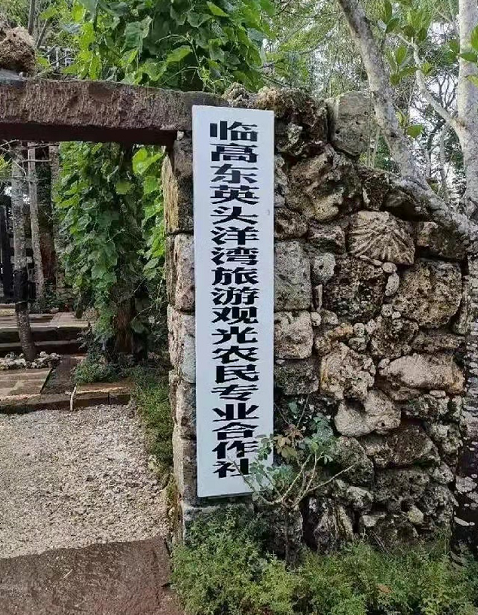 临高东英头洋湾旅游观光农民专业合作社